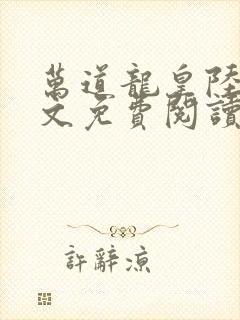 萬道龍皇陸
文免費閱讀
許辭涼